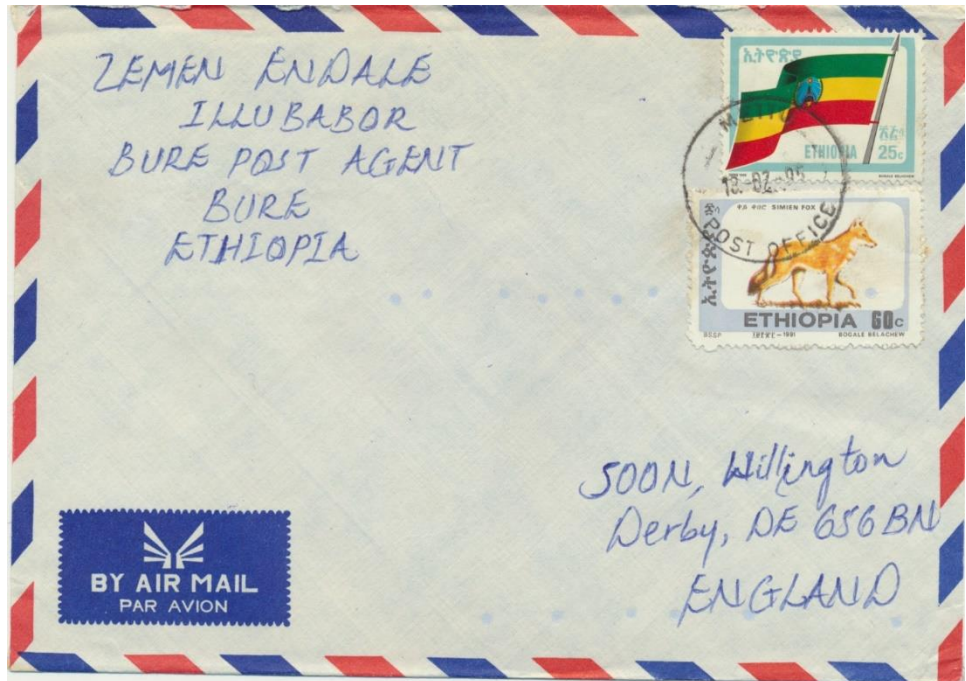 ZEMEN ENDALE
ILLUBABOR
BURE POST AGENT
BURE
ETHIOPIA
ኢትዮጵያ
ETHIOPIA 25c
POST OFFICE
SIMIEN FOX
ኢትዮጵያ
ETHIOPIA 60c
1991 BOGALE BELACHEW
SOON, Willington
Derby, DE 656BN
ENGLAND
BY AIR MAIL
PAR AVION